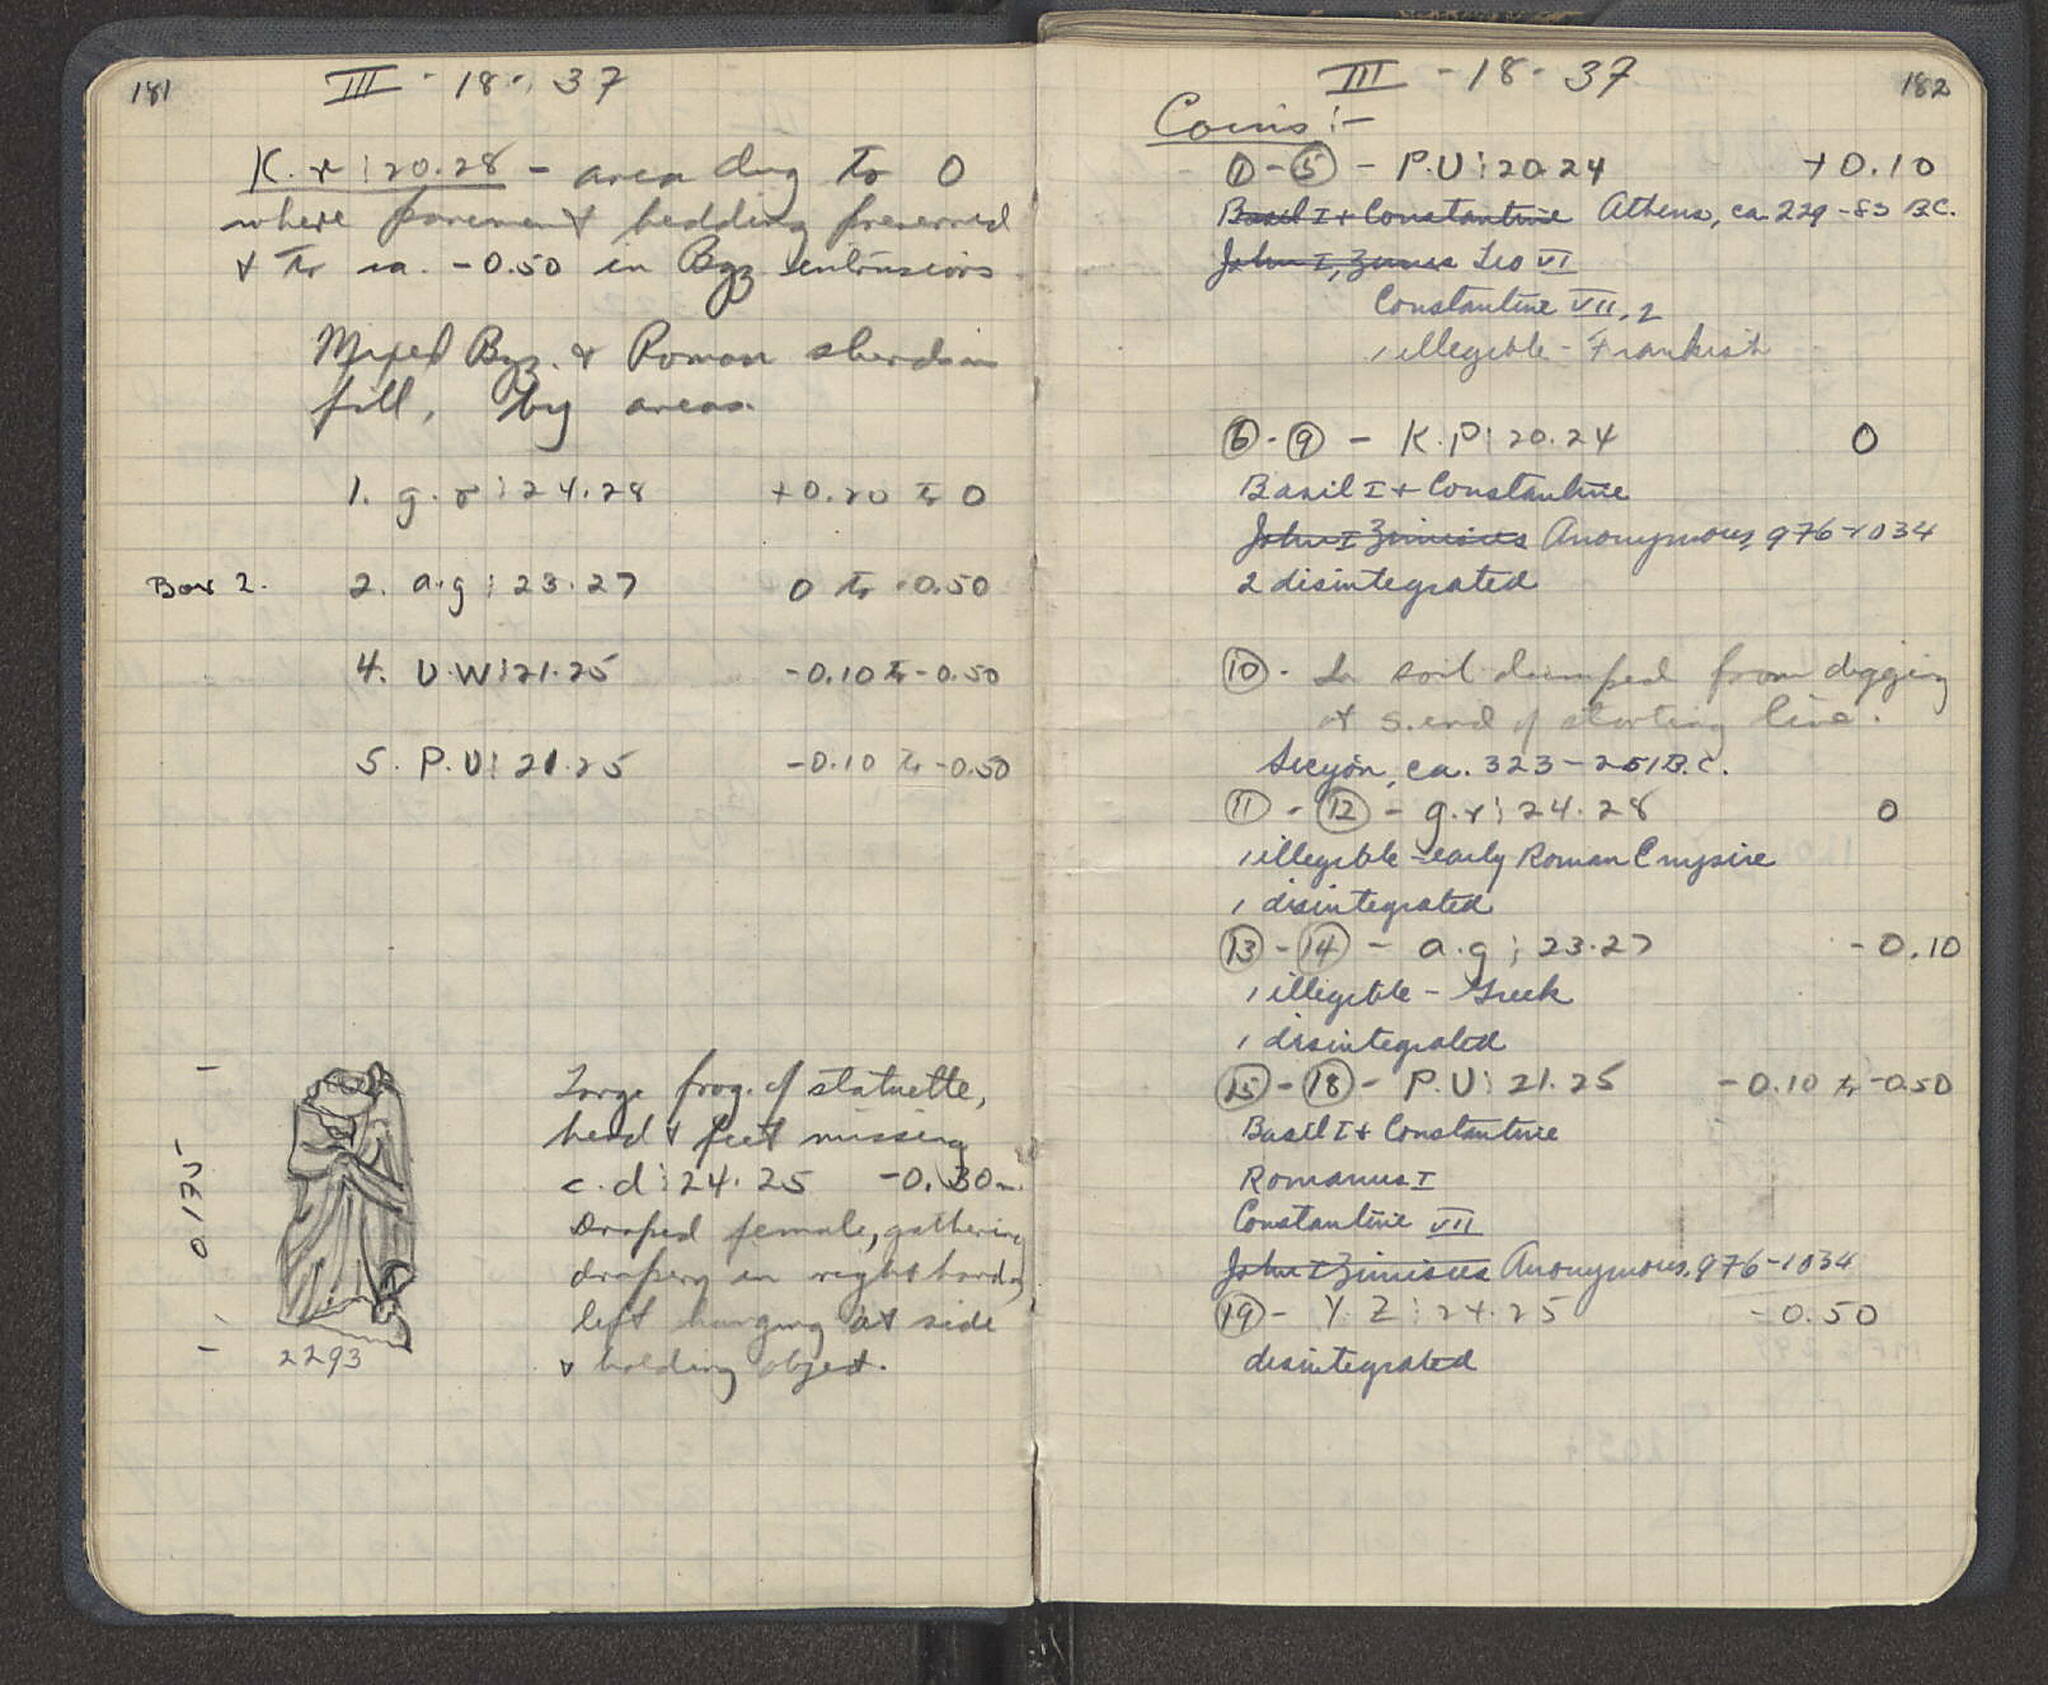 181
III - 18 - 37
K.r:20.28 - area dug to 0
where pavement bedding preserved
& to ca. -0.50 in Byz intrusions
Mixed Byz. & Roman sherds in
fill, by areas.
1. g.r:24.28 +0.20 to 0
Box 2. 2. a.g:23.27 0 to -0.50
4. U.W:21.25 -0.10 to -0.50
5. P.U:21.25 -0.10 to -0.50
0.175
2293
Large frag. of statuette,
head & feet missing
c.d:24.25 -0.30 m.
Draped female, gathering
drapery in right hand,
left hanging at side
& holding object.
III - 18 - 37
182
Coins:-
1 - 5 - P.U:20.24 +0.10
Basil I + Constantine Athens, ca. 229-83 B.C.
John I, Leo VI
Constantine VII, 2
1 illegible - Frankish
6 - 9 - K.P:20.24 0
Basil I + Constantine
John I Zimisces Anonymous, 976-1034
2 disintegrated
10 - In soil dumped from digging
at s. end of starting line.
Sicyon, ca. 323-251 B.C.
11 - 12 - g.r:24.28 0
1 illegible - early Roman Empire
1 disintegrated
13 - 14 - a.g:23.27 -0.10
1 illegible - Greek
1 disintegrated
15 - 18 - P.U:21.25 -0.10 to -0.50
Basil I + Constantine
Romanus I
Constantine VII
John I Zimisces Anonymous, 976-1034
19 - Y.Z:24.25 -0.50
disintegrated